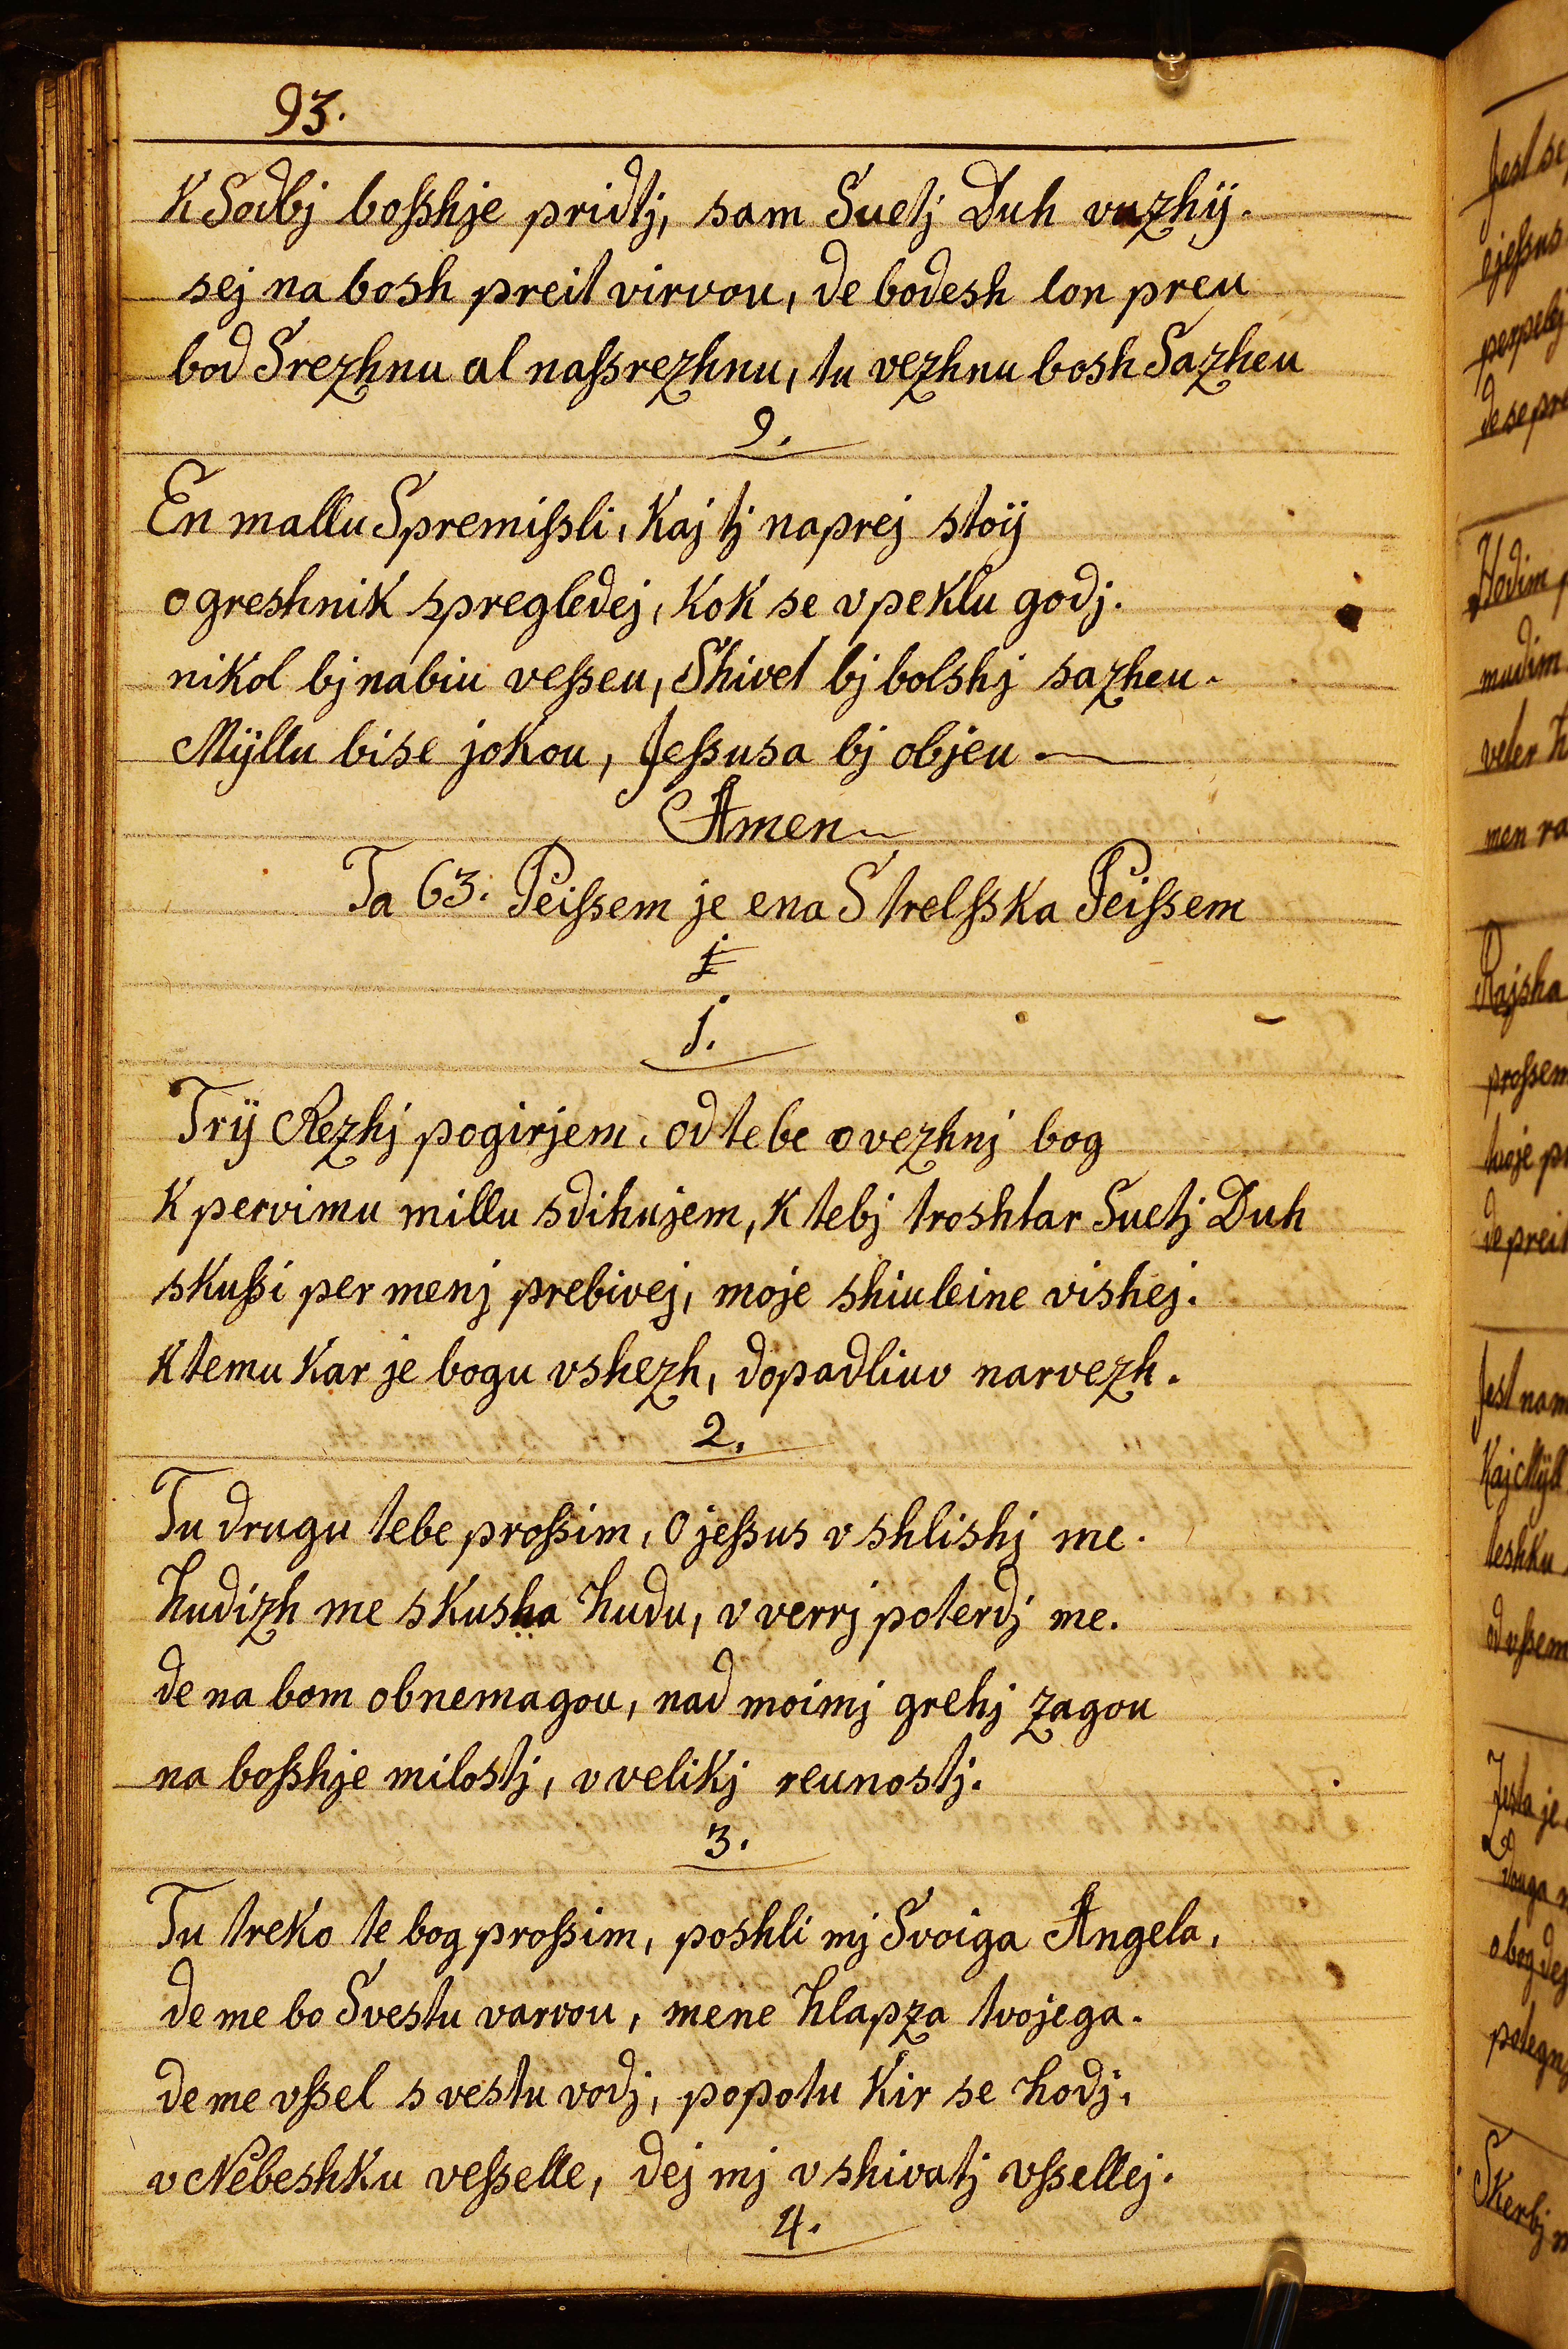 93.
K Sodbj boſshje pridtj, sam Suetj Duh vuzhÿ.
sej na bosh preit virvou, de bodesh lon preu
bod Srezhnu al naſsrezhnu, tu vezhnu bosh Sazheu
9.
En mallu Spremiſsli, Kaj tj naprej stoÿ
o greshnik spregledej, Kok se v peklu godj.
nikol bj nabiu veſseu, Shivet bj bolshj sazheu.
Mÿllu bise jokou, Jeſsusa bj objeu
Amen
Ta 63. Peiſsem je ena Strelſska Peiſsem
1.
Trÿ Rezhj pogirjem, od tebe o vezhnj bog
K pervimu millu sdihujem, K tebj troshtar Suetj Duh
skuſsi per menj prebivej, moje shiuleine vishej.
K temu Kar je bogu vshezh, dopadliuv narvezh.
2.
Tu drugu tebe proſsim, O jeſsus v shlishj me.
hudizh me skusha hudu, v verrj poterdj me.
de na bom obnemagou, nad moimj grehj zagou
na boſshje milostj, v velikj reunostj.
3.
Tu treko te bog proſsim, poshli mj Svoiga Angela,
de me bo Svestu varvou, mene hlapza tvojega.
de me vſsel s vestu vodj, popotu Kir se hodj,
v Nebeshku veſselle, dej mj v shivatj vſsellej.
4.